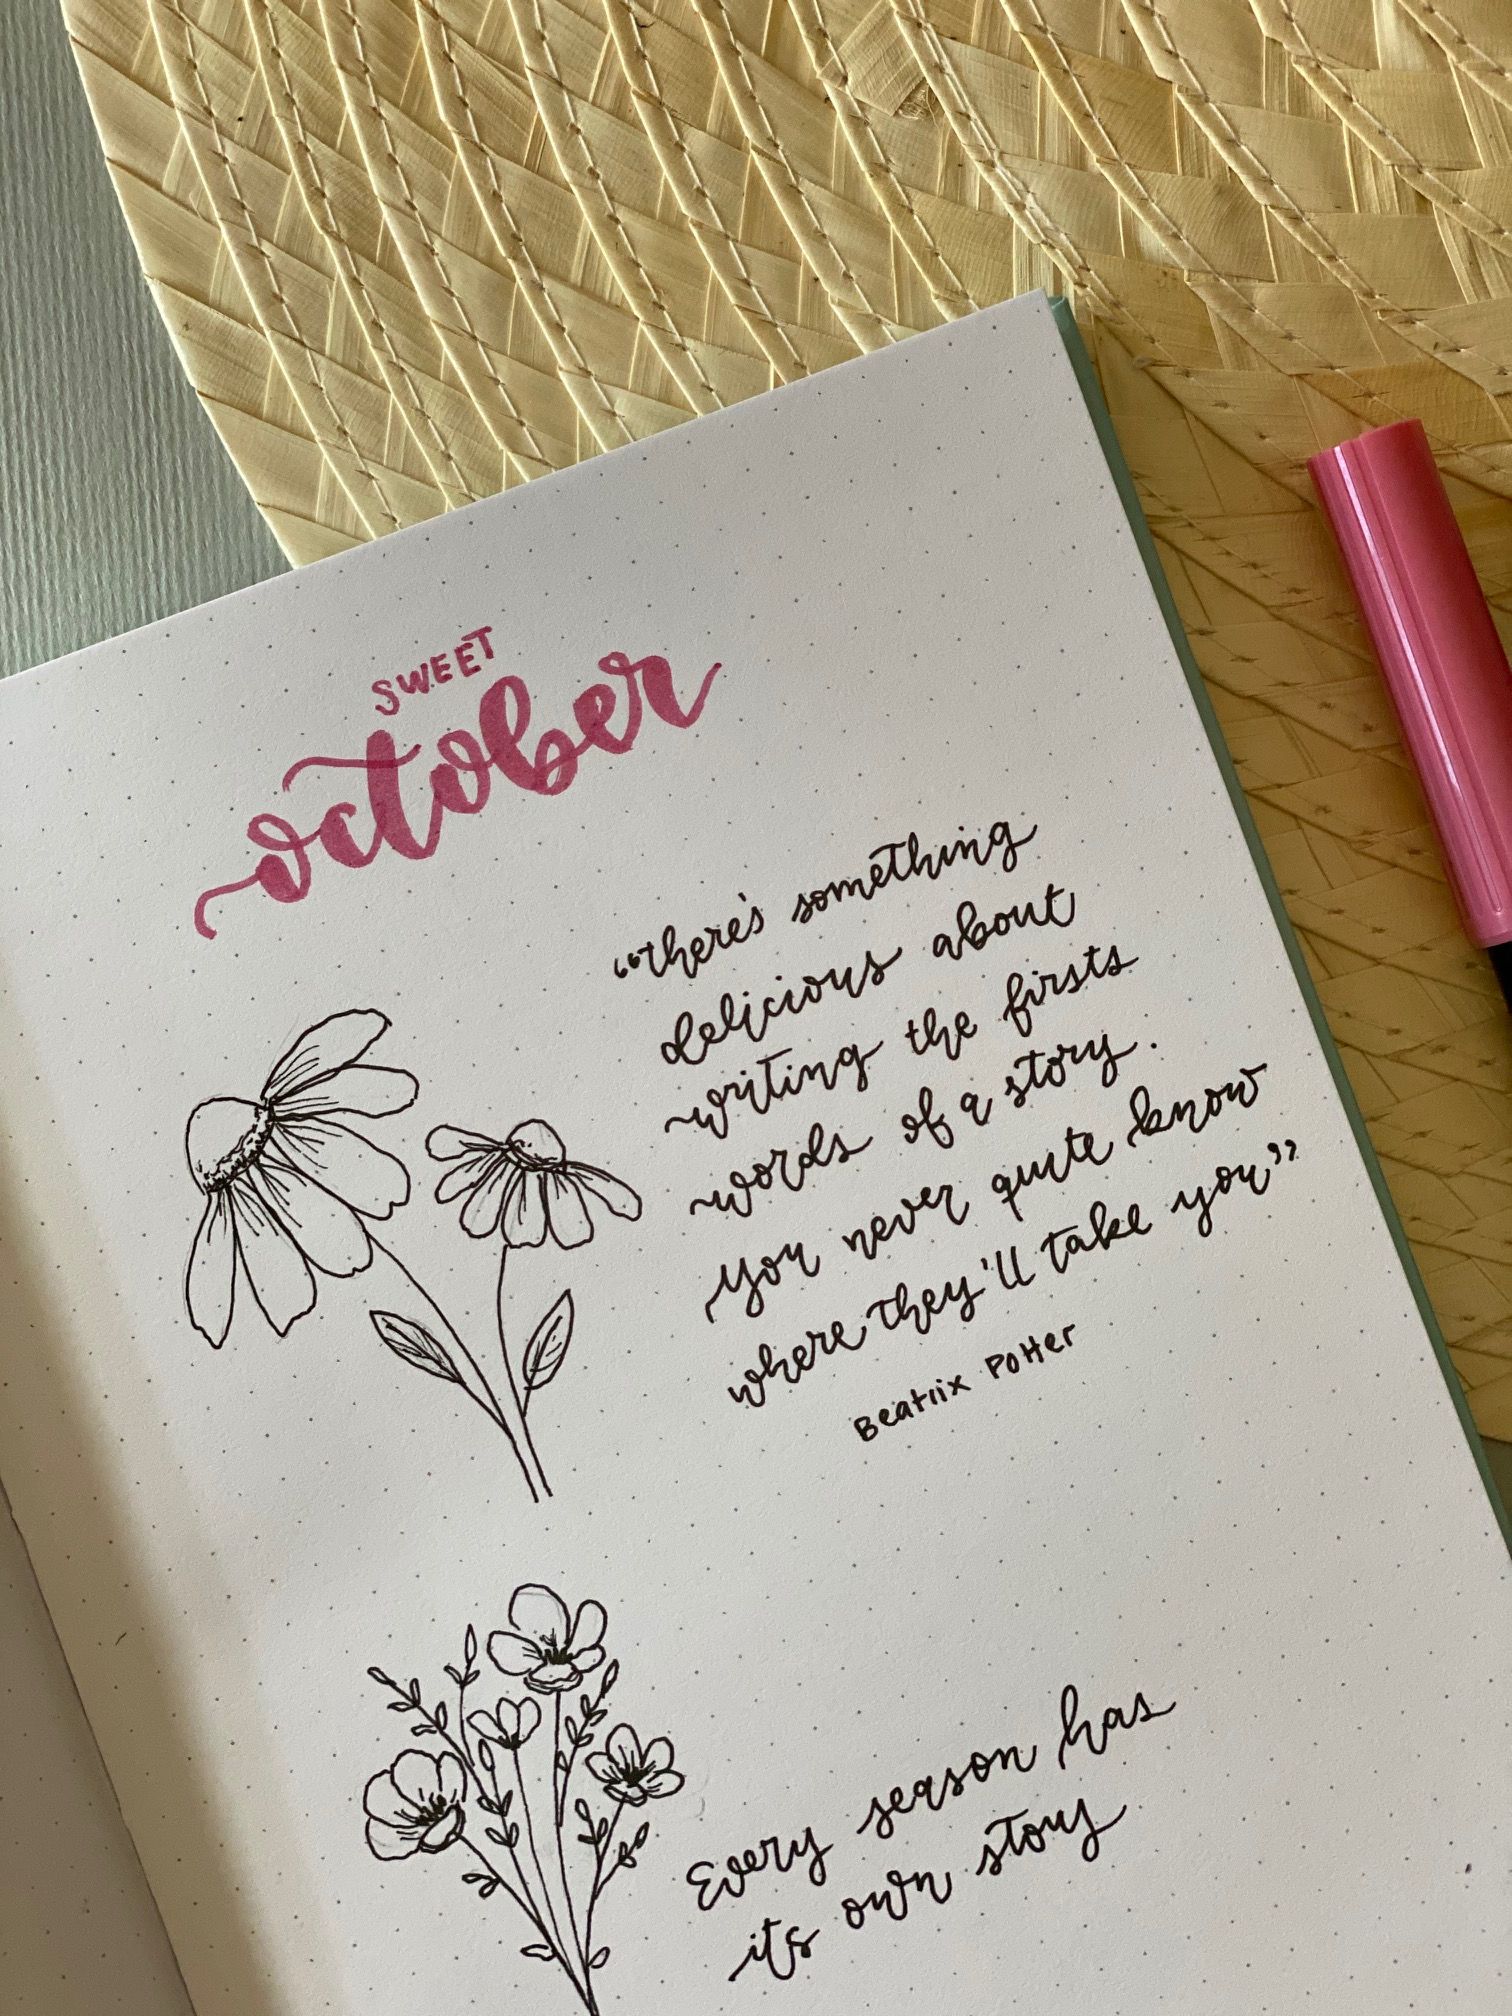 SWEET
october
“there's something
delicious about
writing the firsts
words of a story.
you never quite know
where they'll take you”
Beatrix Potter
Every season has
its own story